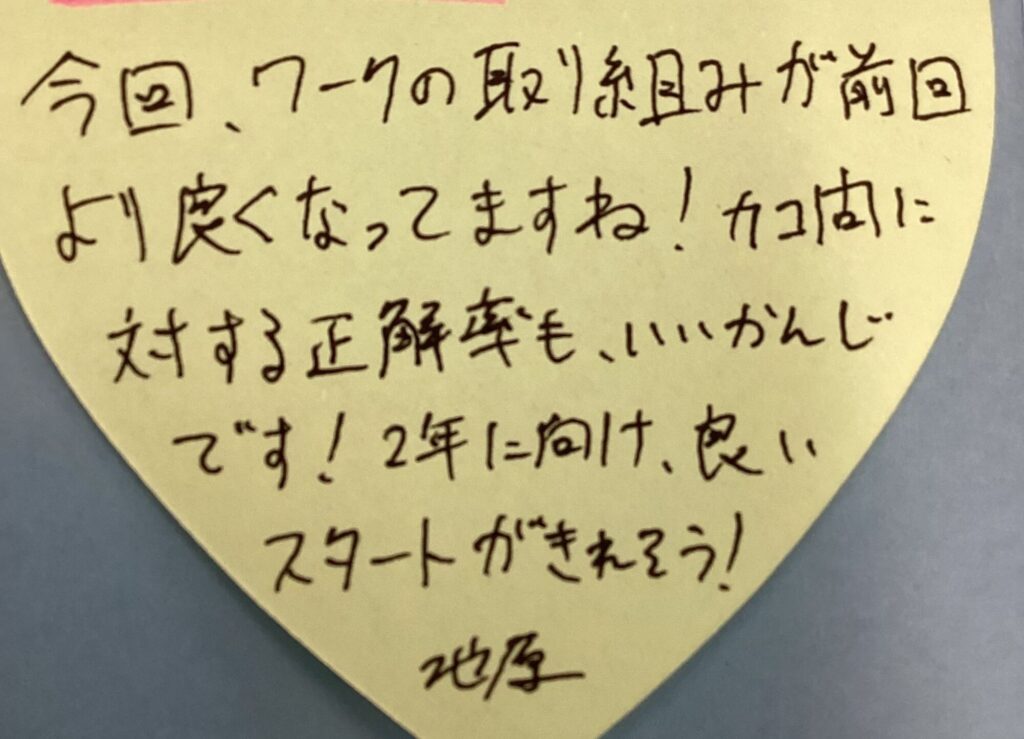 今回、ワークの取り組みが前回
より良くなってますね！カコ問に
対する正解率も、いいかんじ
です！2年に向け、良い
スタートがきれそう！
池原